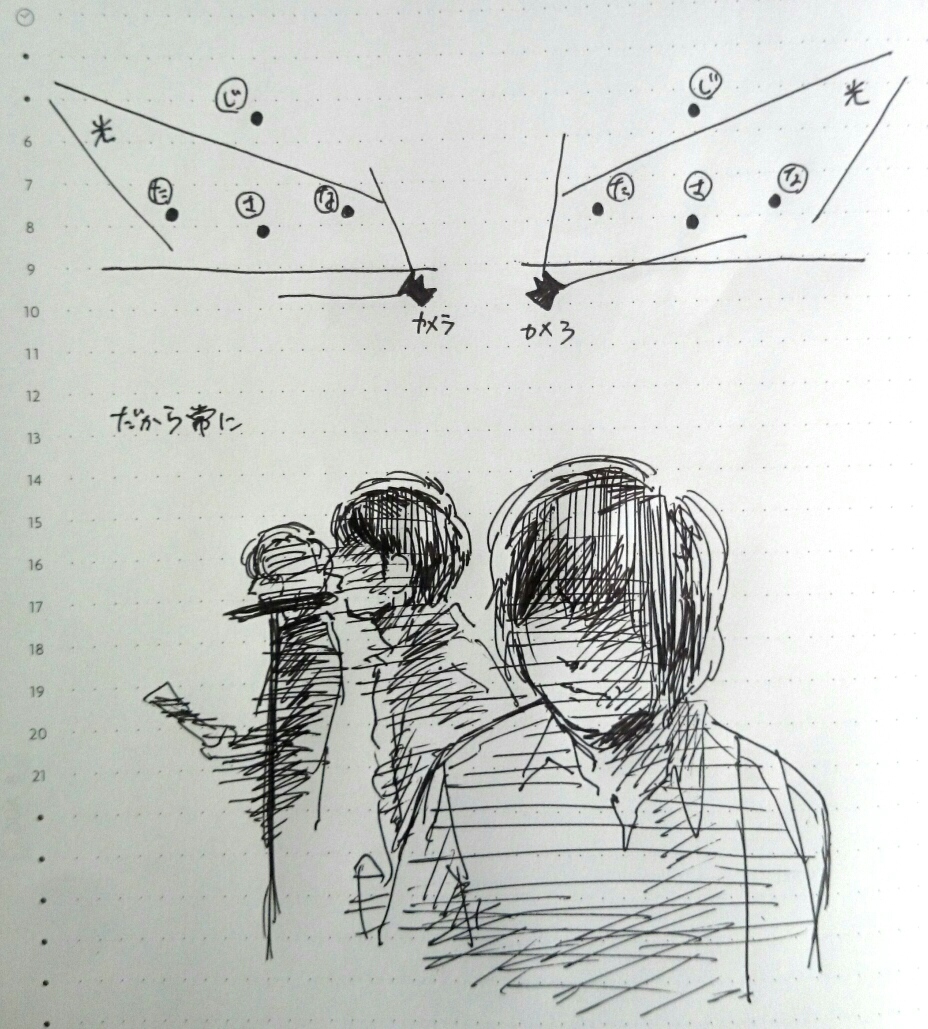 じ じ
光 光
6
た ま な た ま な
7
8
9
10
カメラ カメラ
11
12
だから常に
13
14
15
16
17
18
19
20
21